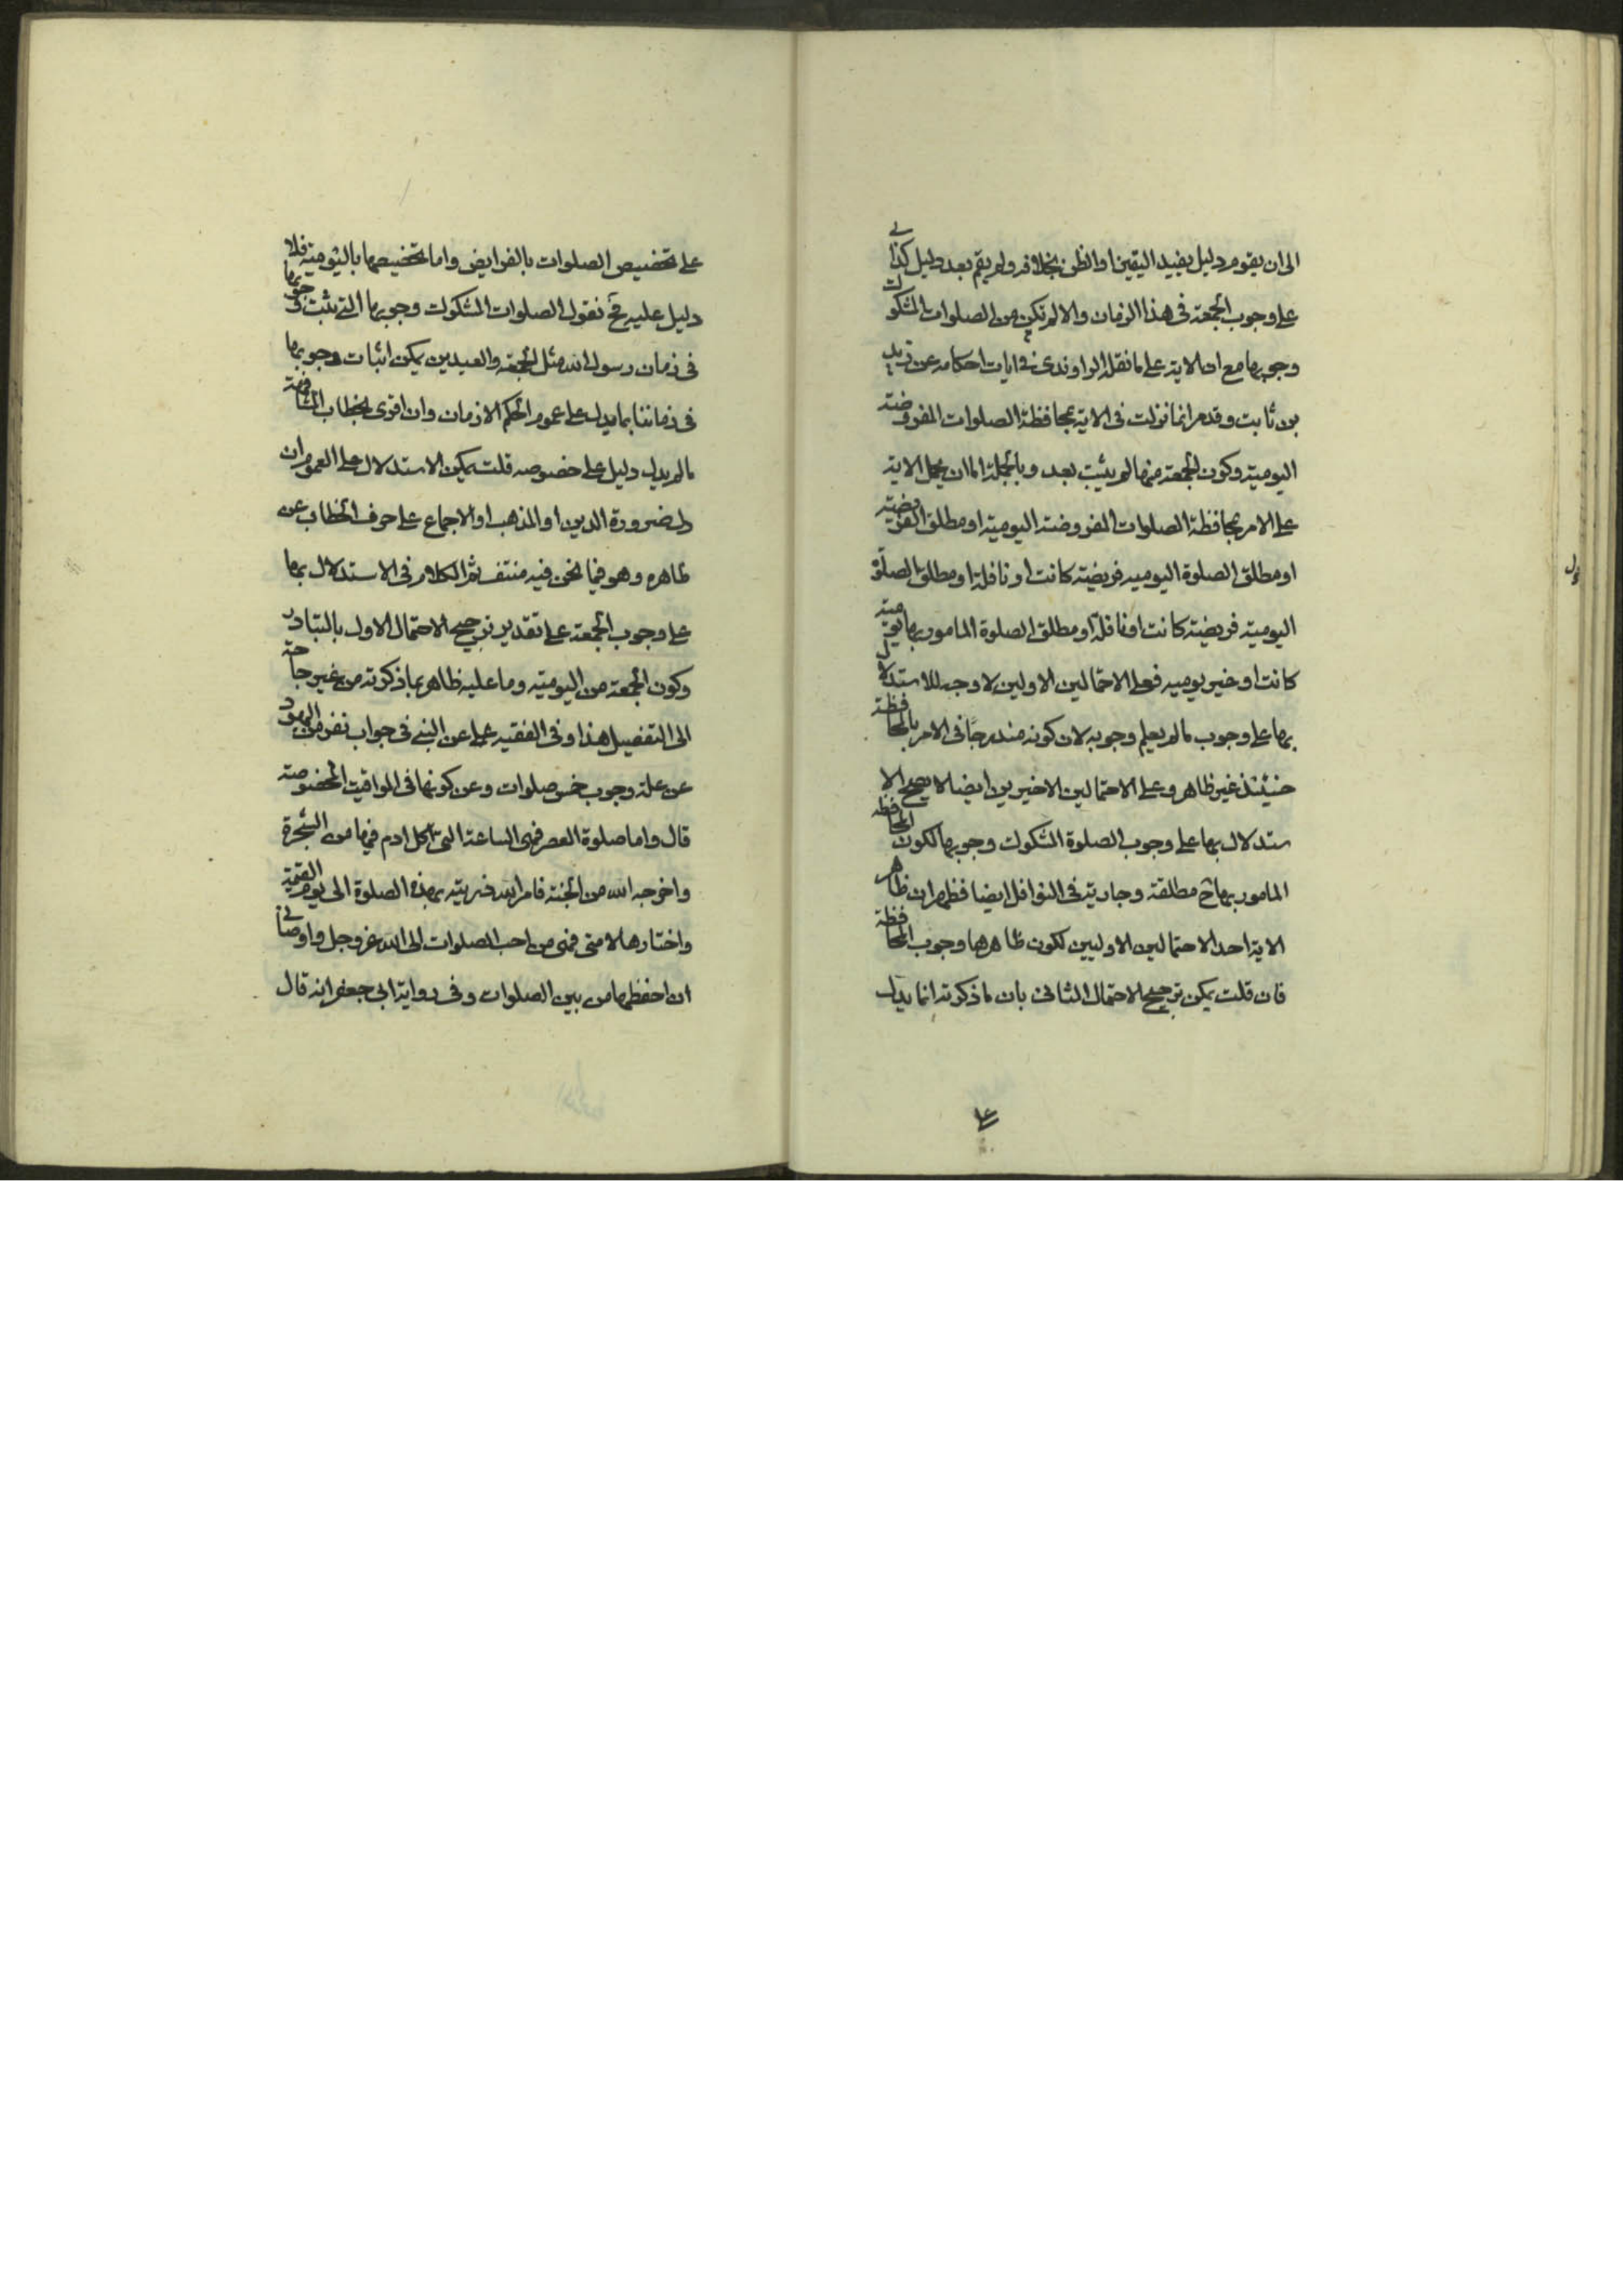 الى ان يقوم دليل يفيد اليقين او الظن بخلافه ولم يقم بعد دليل كذائي
على وجوب الجمعة فى هذا الزمان والا لم تكن من الصلوات المشكوك
وجوبها مع ان الاية على ما نقله الراوندى فى ايات احكامه عن زيد
بن ثابت وقد مر انما نزلت فى الاية بمحافظة الصلوات المفروضة
اليومية وكون الجمعة منها لم يثبت بعد وبالجملة اما ان يحمل الاية
على الامر بمحافظة الصلوات المفروضة اليومية او مطلق الفريضة
او مطلق الصلوة اليوميه فريضة كانت او نافلة او مطلق الصلوة
اليومية فريضة كانت او نافلة او مطلق الصلوة المامور بها يومية
كانت او غير يوميه فعلى الاحتمالين الاولين لا وجه للاستدلال
بها على وجوب ما لم يعلم وجوبه لان كونه مندرجا فى الامر بالمحافظة
حنيئذ غير ظاهر وعلى الاحتمالين الاخيرين ايضا لا يصح الا
ستدلال بها على وجوب الصلوة المشكوك وجوبها لكون المحافظه
المامور بها ح مطلقة وجارية فى النوافل ايضا فظهر ان ظاهر
الاية احد الاحتمالين الاوليين لكون ظاهرها وجوب المحافظة
فان قلت يمكن ترجيح الاحتمال الثانى بان ما ذكرته انما يدل
على
على تخصيص الصلوات بالفرايض واما تخصيصها باليومية فلا
دليل عليه فح نقول الصلوات المشكوك وجوبها التى ثبت وجوبها
فى زمان رسول الله مثل الجمعة والعيدين يمكن اثبات وجوبها
فى زماننا بما يدل على عموم الحكم الازمان وان اقوى بخطاب المشافهة
ما لم يدل دليل على خصوصه قلت يمكن الاستدلال على العموم ان
دل ضرورة الدين او المذهب او الاجماع على حرف الخطاب عن
ظاهره وهو فيما نحن فيه منتف ثم الكلام فى الاستدلال بها
على وجوب الجمعة على تقدير ترجيح الاحتمال الاول بالتبادر
وكون الجمعة من اليومية وما عليه ظاهر بما ذكرته من غير حاجة
الى التفصيل هذا وفى الفقيه عن النبى فى جواب نفر من اليهود
عن علة وجوب خمس صلوات وعن كونها فى المواقيت المخصوصة
قال واما صلوة العصر فهى الساعة التى اكل ادم فيها من الشجرة
واخرجه الله من الجنة فامر الله ذريته بهذه الصلوة الى يوم القيمة
واختارها لامتى فهى من احب الصلوات الى الله عز وجل واوصانى
ان احفظها من بين الصلوات وفى رواية ابى جعفر انه قال